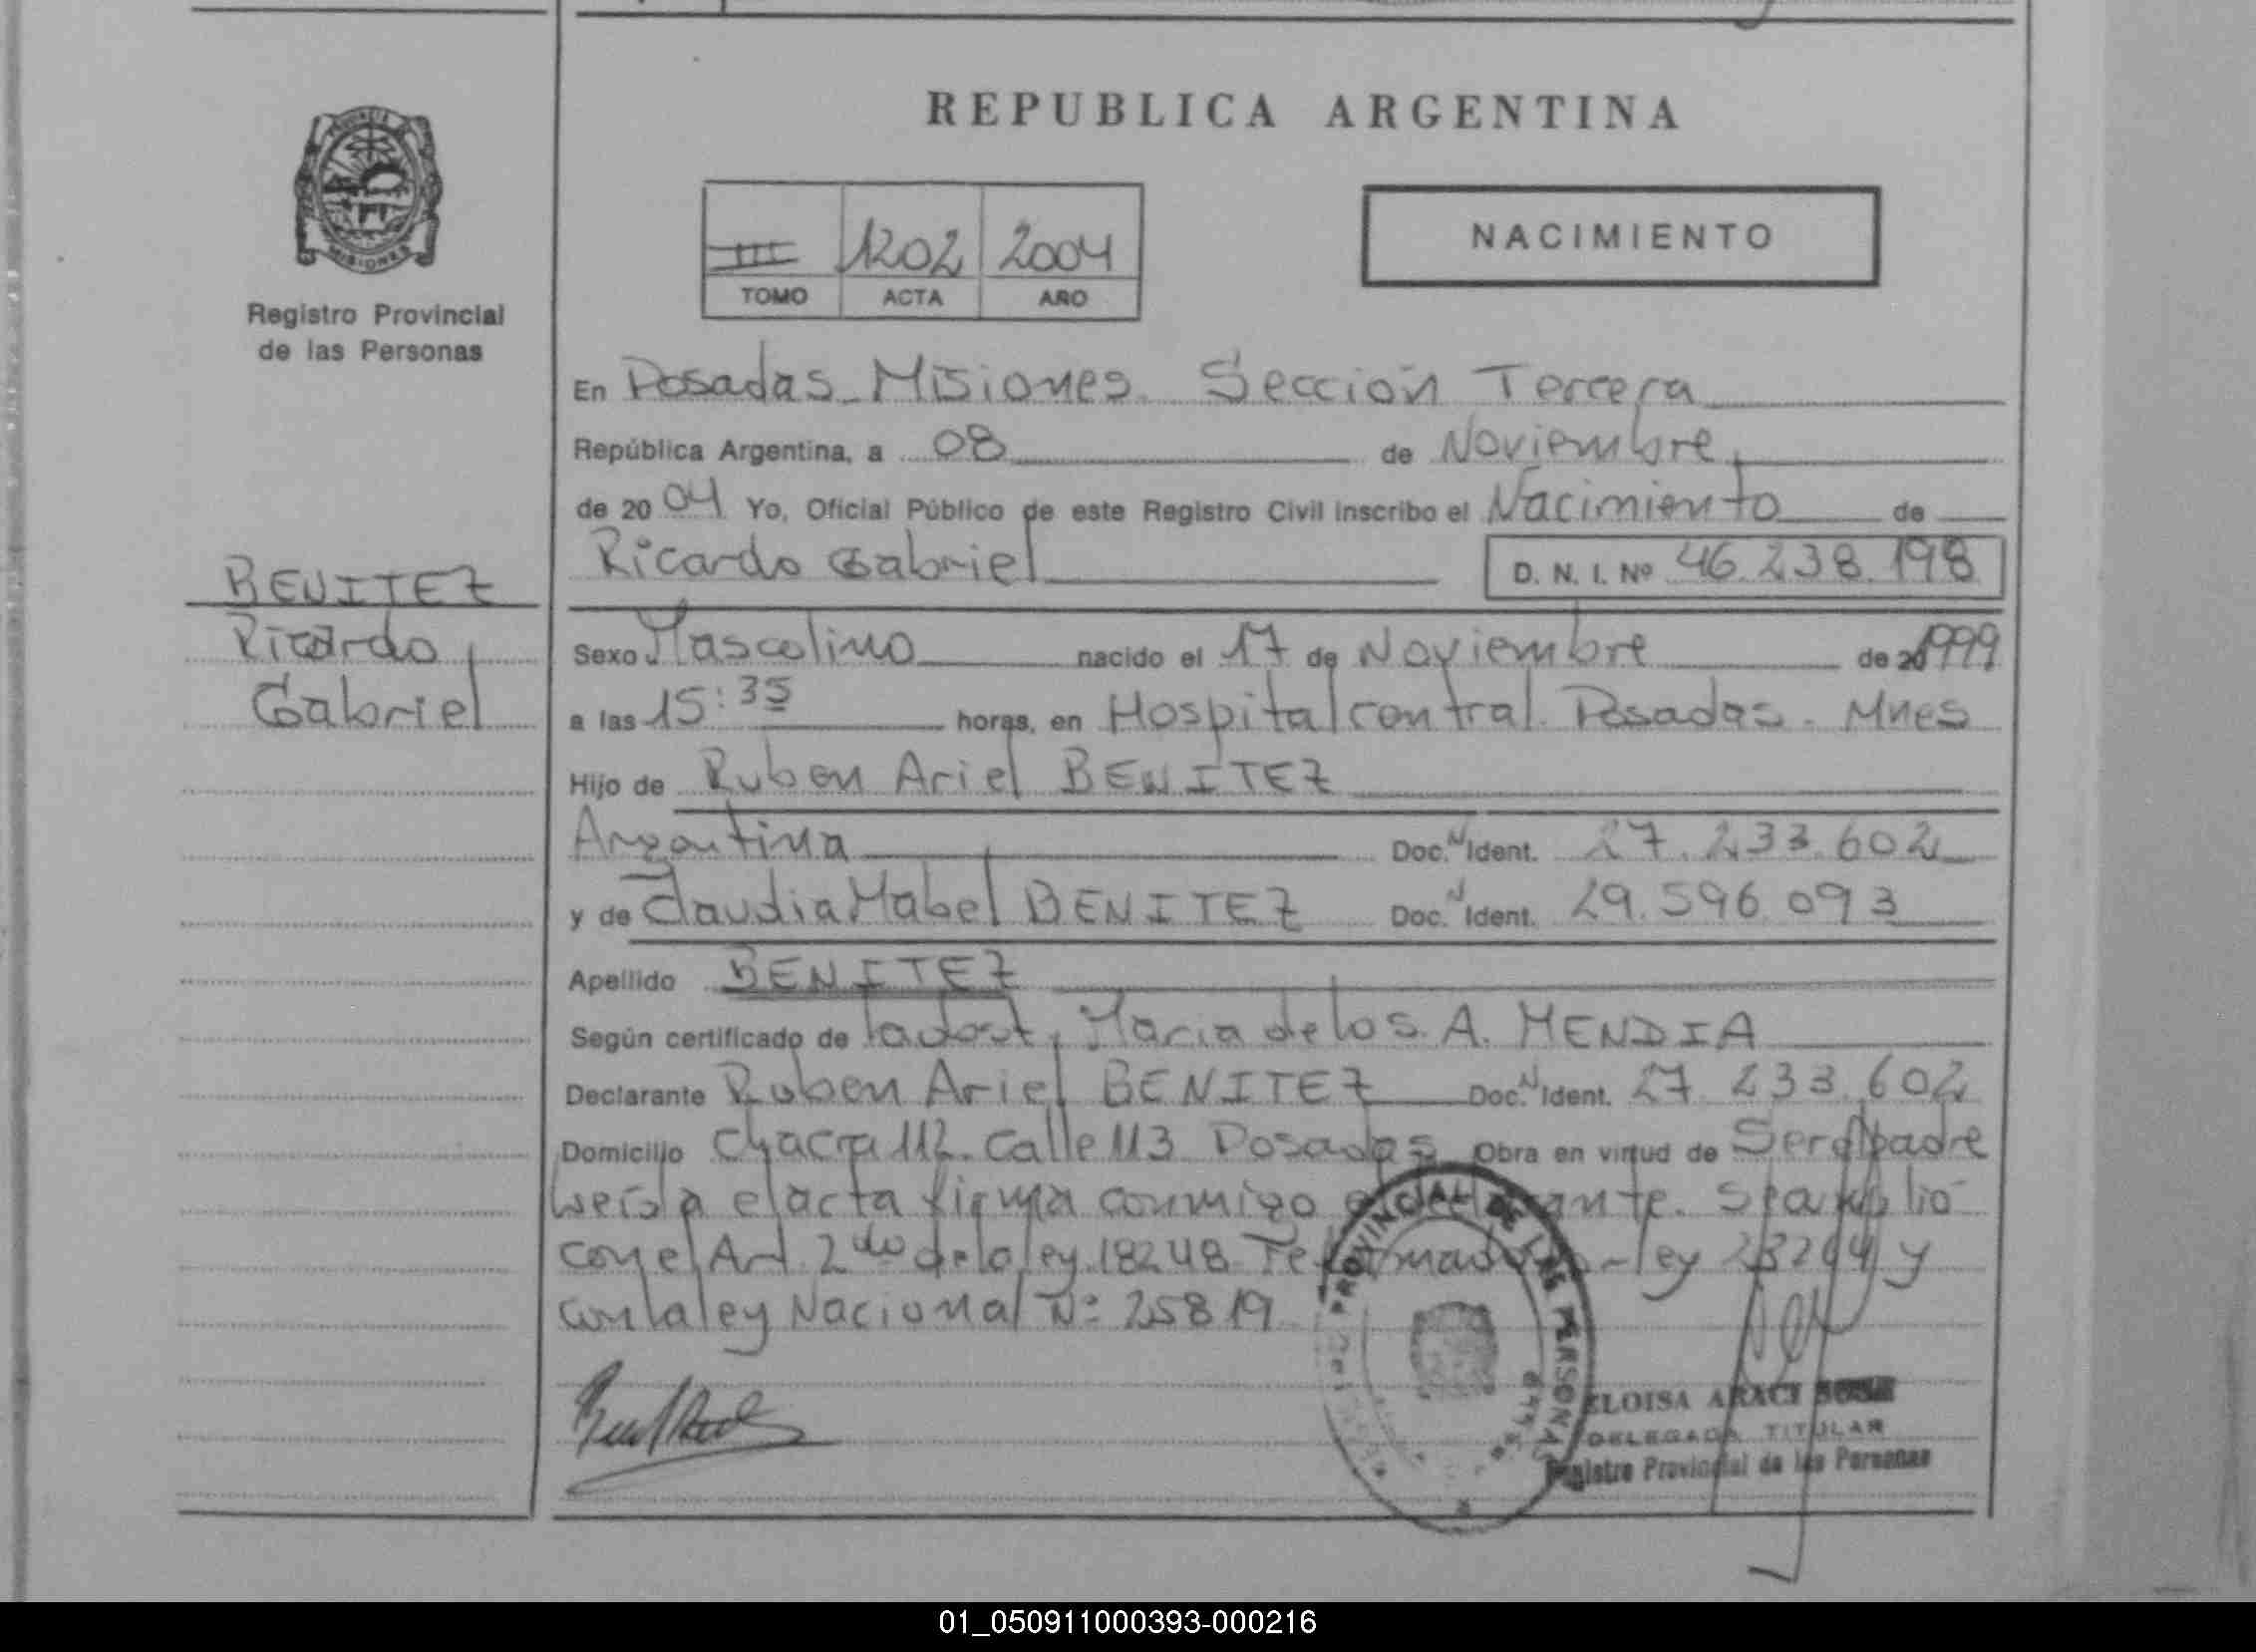 REPUBLICA ARGENTINA
PROVINCIA DE MISIONES
Registro Provincial
de las Personas
III 1202 2004
TOMO ACTA AÑO
NACIMIENTO
En Posadas Misiones. Sección Tercera
República Argentina, a 08 de Noviembre
de 2004 Yo, Oficial Público de este Registro Civil inscribo el Nacimiento de
Ricardo Gabriel D. N. I. Nº 46.238.198
BENITEZ
Ricardo
Gabriel
Sexo Masculino nacido el 17 de Noviembre de 1999
a las 15:35 horas, en Hospital central. Posadas. Mnes
Hijo de Ruben Ariel BENITEZ
Argentina Doc. N Ident. 27.233.602
y de Claudia Mabel BENITEZ Doc. N Ident. 29.596.093
Apellido BENITEZ
Según certificado de Maria de los A. MENDIA
Declarante Ruben Ariel BENITEZ Doc. N Ident. 27.233.602
Domicilio Chacra 112. Calle 113 Posadas Obra en virtud de Ser el padre
Leída el acta firma conmigo el declarante. Se amplió
con el Art. 2do de la ley 18248 ley 23264 y
con la ley Nacional Nº 25819
PROVINCIAL DE LAS PERSONAS
ELOISA ARACI
DELEGADA TITULAR
Registro Provincial de las Personas
01_050911000393-000216